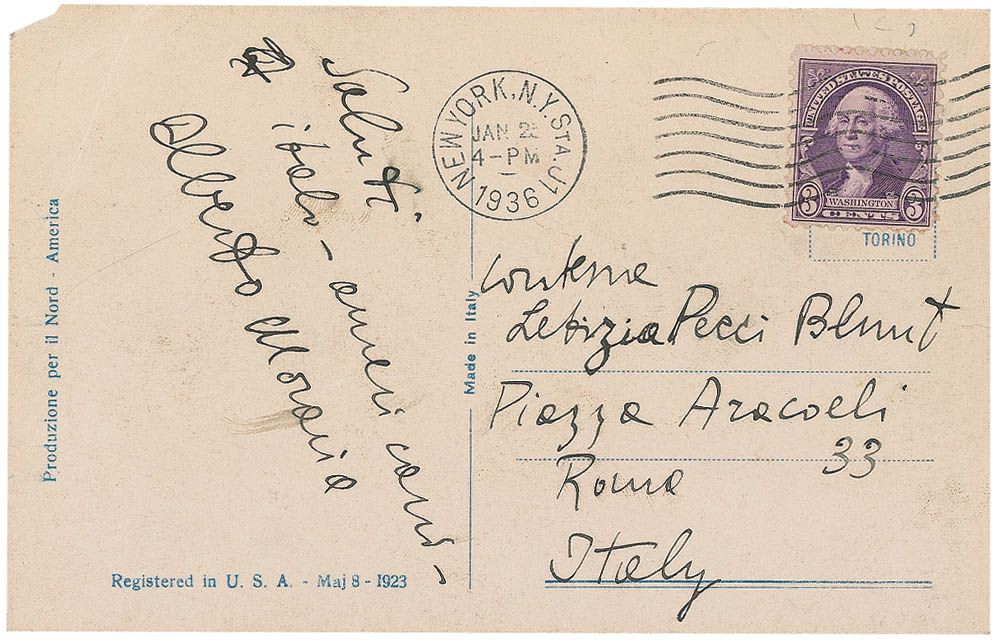 Saluti
italo-americani-
Alberto Moravia
NEW YORK, N.Y. STA. J1
JAN 2
4-PM
1936
UNITED STATES POSTAGE
3 WASHINGTON 3
CENTS
TORINO
Contessa
Letizia Pecci Blunt
Piazza Aracoeli
33
Roma
Italy
Made in Italy
Produzione per il Nord - America
Registered in U. S. A. - Maj 8 - 1923